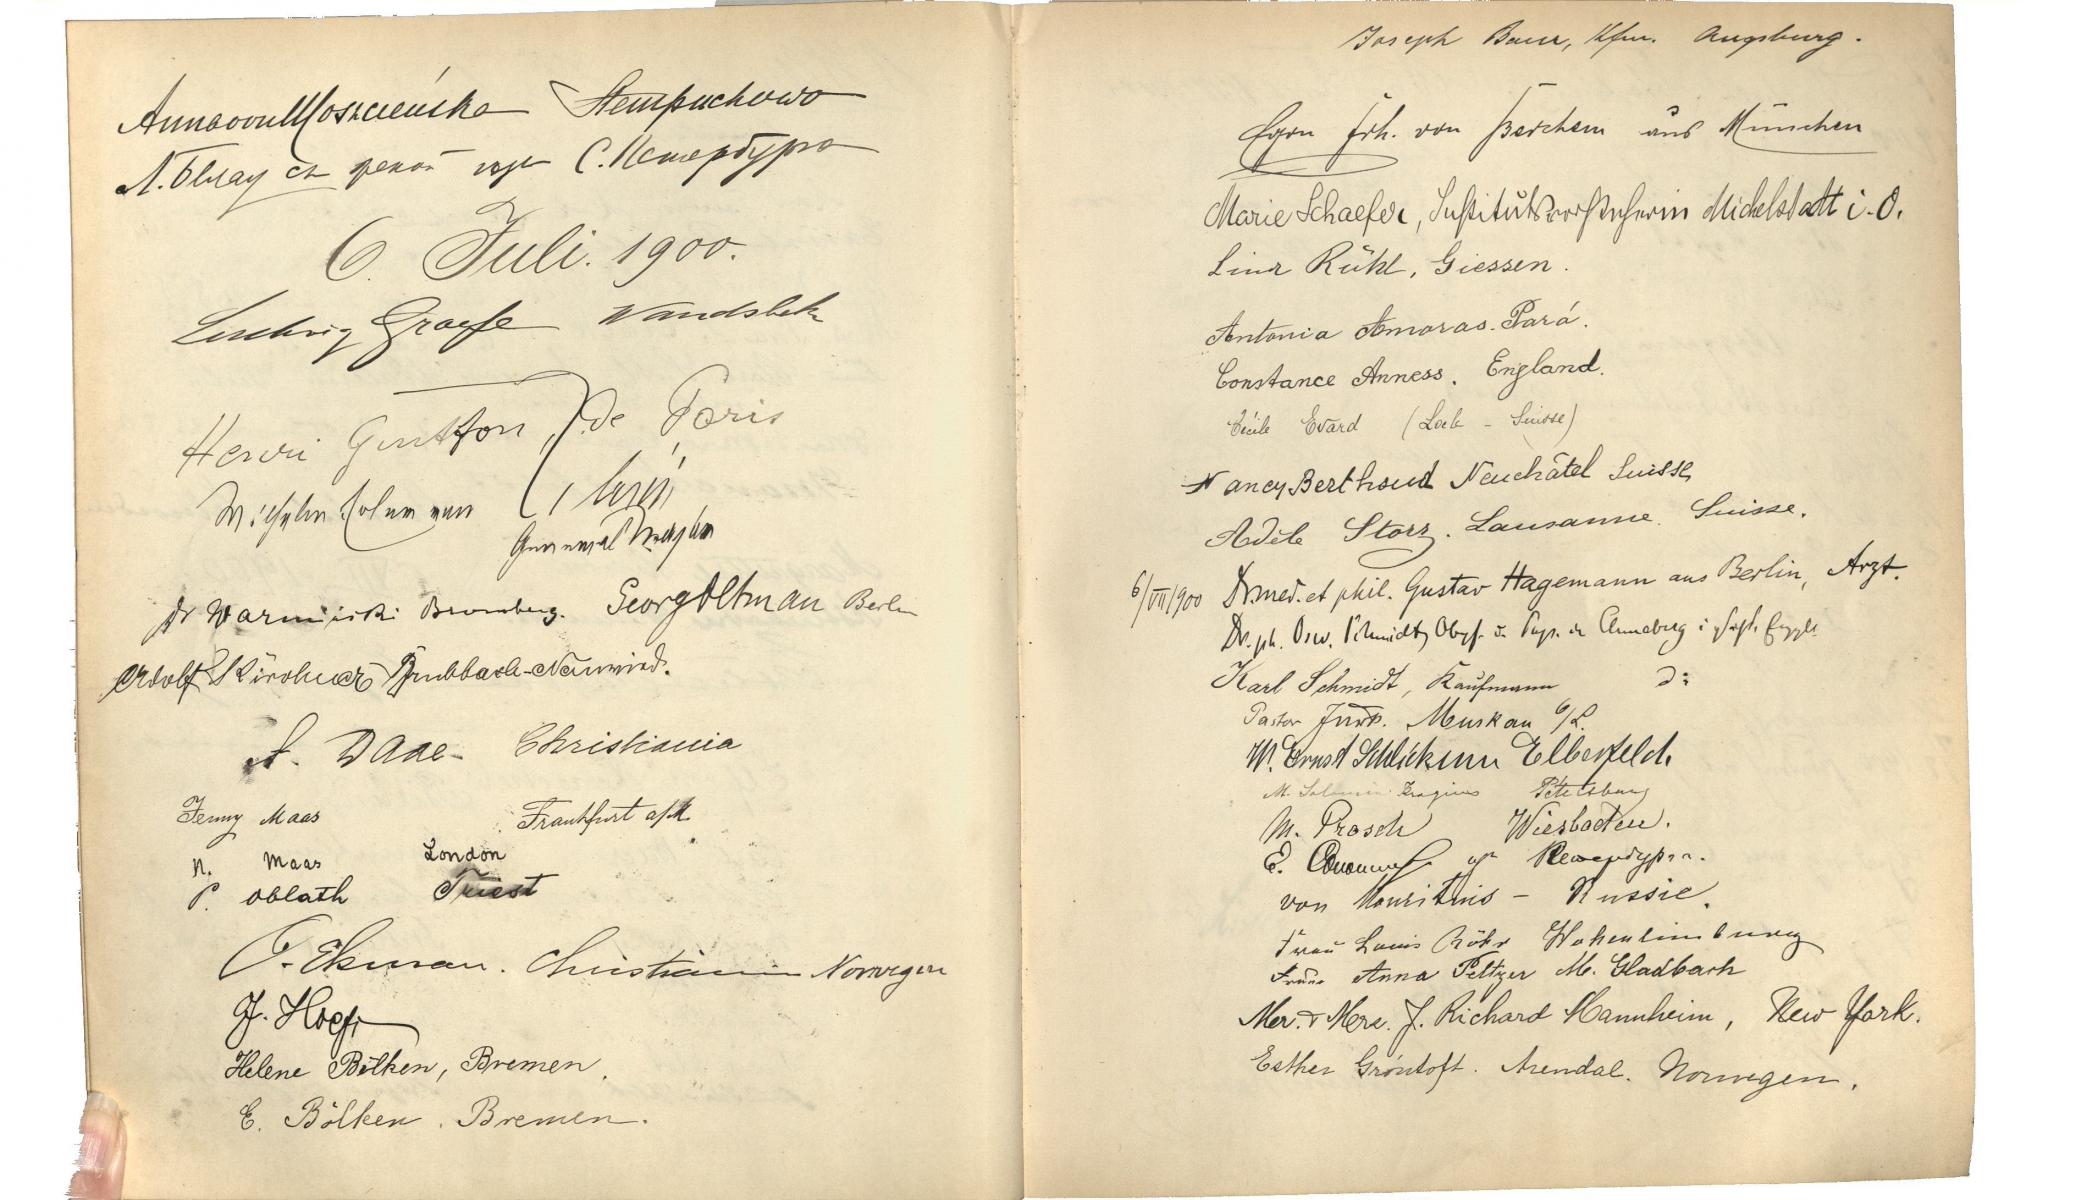 Anna von Moszczeńska Stempuchowo
С. Петербурга
6. Juli. 1900.
Ludwig Graefe Wandsbek
Henri de Paris
Wilhelm
General
Dr Warmiński Bromberg. Georg Oltman Berlin
Adolf Kirchner
A. Daae - Christiania
Jenny Maas Frankfurt a/M
N. Maas London
P. Oblath Triest
O. Ekman. Christiania Norwegen
J. Hoeft
Helene Bölken, Bremen.
E. Bölken. Bremen.
Joseph Baur, Kfm. Augsburg.
Egon Frh. von Berchem aus München
Marie Schaefer, Institutsvorsteherin Michelstadt i. O.
Lina Rühl, Giessen.
Antonia Amoras. Pará.
Constance Anness. England.
Cécile Evard (Locle - Suisse)
Nancy Berthoud Neuchâtel Suisse
Adèle Storz. Lausanne. Suisse.
6/VII/1900 Dr. med. et phil. Gustav Hagemann aus Berlin, Arzt.
Dr. ph. Osw. Schmidt, Annaberg
Karl Schmidt, Kaufmann do
Pastor Muskau O/L.
W. Ernst Schlickum Elberfeld.
M. Petersburg
M. Prosch Wiesbaden.
E.
von Mauritius - Russie.
Frau Louis Röhr Hohenlimburg
Frau Anna Peltzer M. Gladbach
Mr. & Mrs. J. Richard Mannheim, New York.
Esther Gröntoft. Arendal. Norwegen.